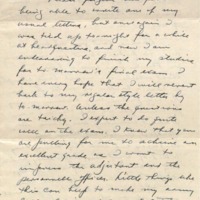 being able to write one of my
usual letters, but once again I
was tied up tonight for a while
at headquarters, and now I am
endeavoring to finish my studies
for to-morrow's final exam. I
have every hope that I will revert
back to my regular style letter by
to-morrow. Unless the questions
are tricky, I expect to do quite
well on the exam. I know that you
are pulling for me to achieve an
excellent grade as I want to
impress the adjutant and the
personnel officer. Little things like
this can help to make my army